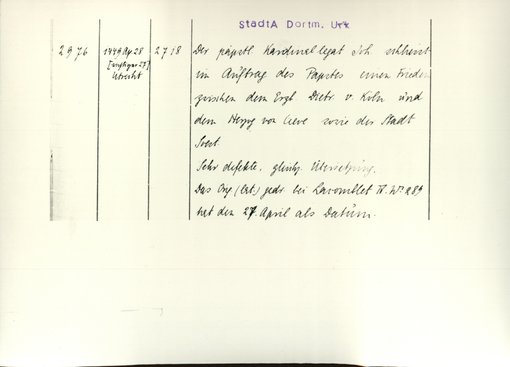 StadtA Dortm. Urk
2976
1449 Apr 28
Utrecht
2718
Der päpstl. Kardinallegat Joh. schliesst
im Auftrag des Papstes einen Frieden
zwischen dem Erzb. Dietr. v. Köln und
dem Herzog von Cleve sowie der Stadt
Soest.
Sehr defekte, gleichz. Übersetzung.
Das Org (Lat.) gedr. bei Lacomblet IV. No
hat den 27. April als Datum.